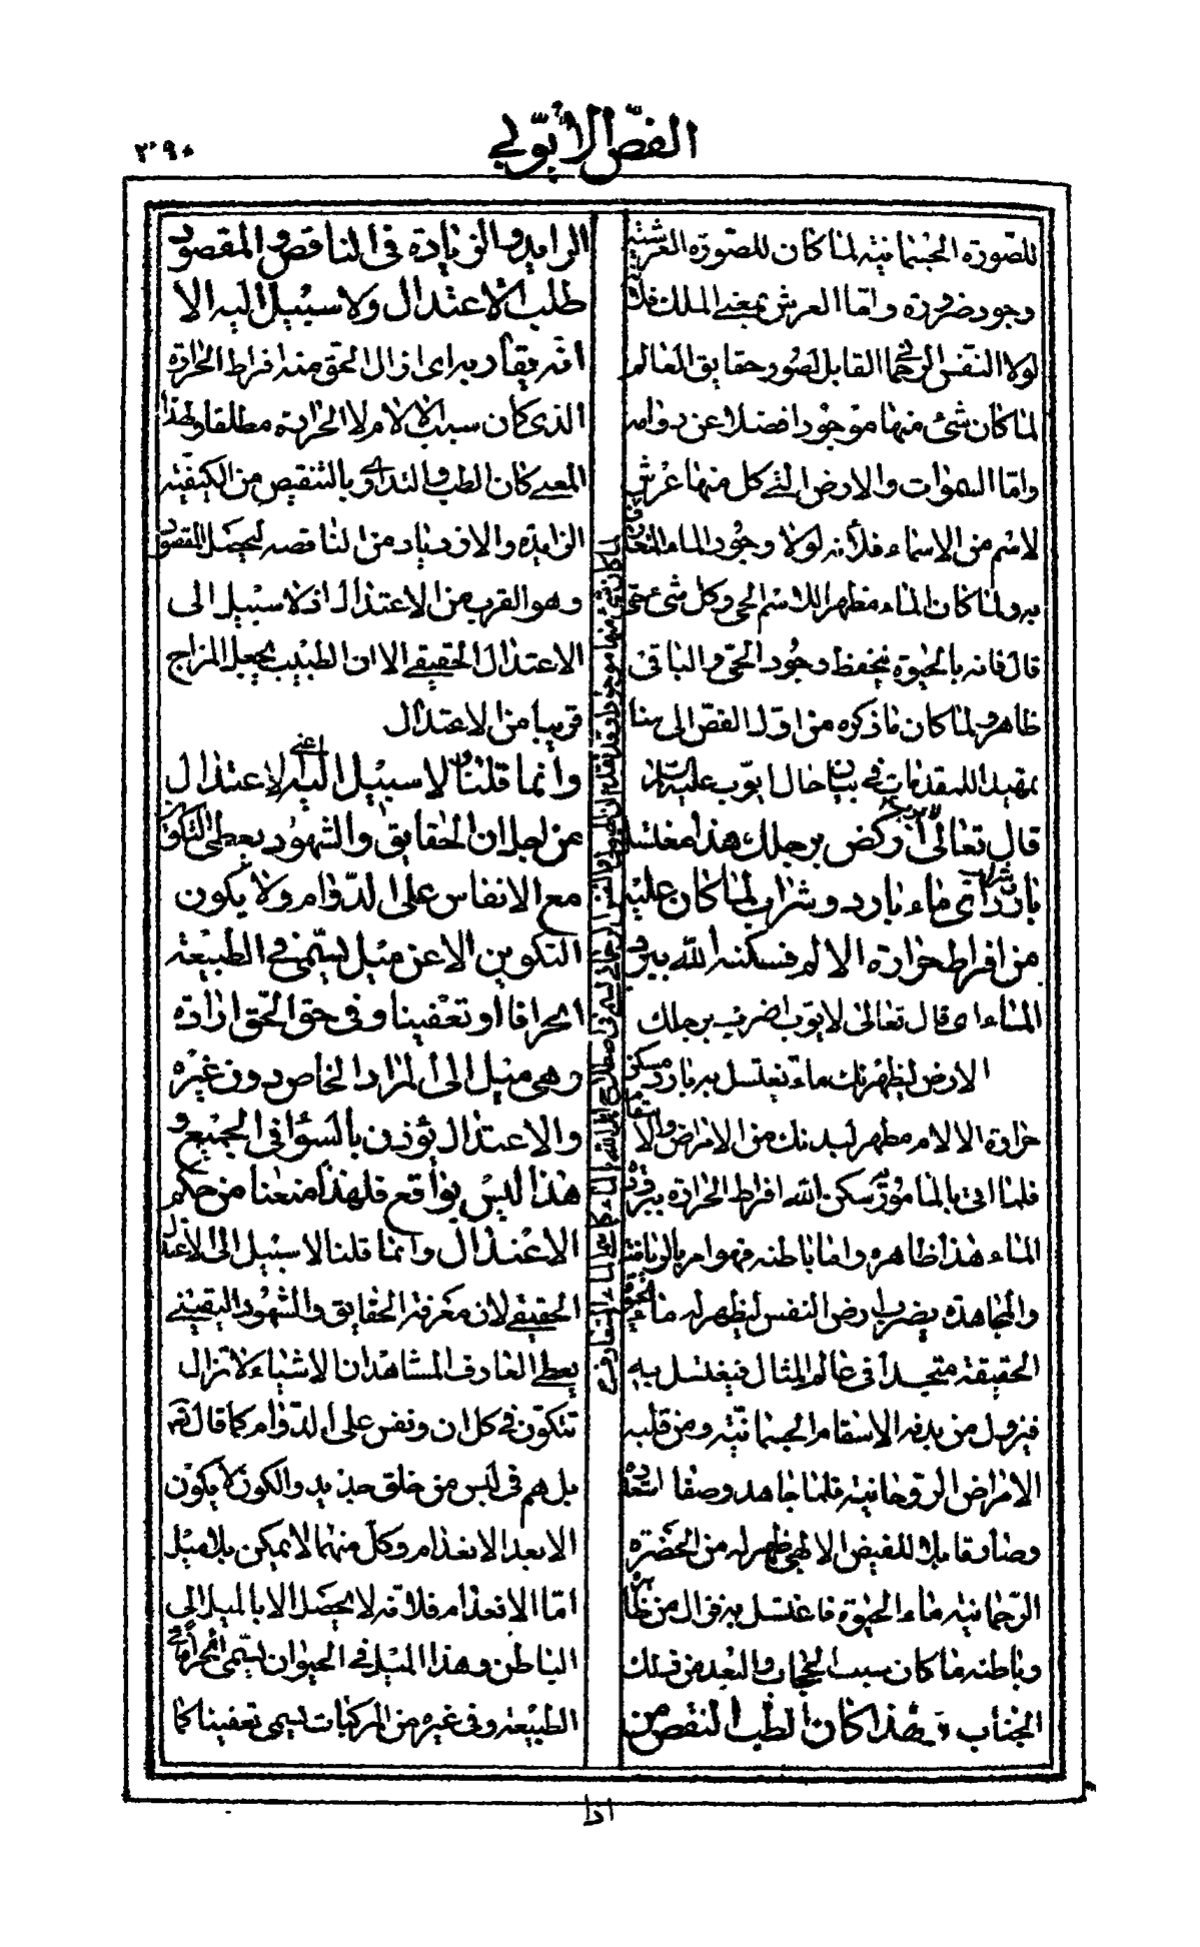 الفصّ الأيّوبي
٣٩٠
للصّورة الجسمانيّة لما كان للصّورة العرشيّة
وجود ضرورة وامّا العرش بمعنى الملك فلانّه
لولا النّفس الرّحمانى القابل لصور حقايق العالم
لما كان شئ منها موجودا فضلا عن دوامه
وامّا السموات والارض التى كل منها عرش
لاسم من الاسماء فلأنه لولا وجود الماء المتعارف
به ولما كان الماء مظهرا للاسم الحى وكل شئ حى
قال فانه بالحيوة ينحفظ وجود الحىّ والباقى
ظاهر ولما كان ما ذكره من اوّل الفصّ الى هنا
تمهيدا للمقدمات فى بيان حال ايّوب عليه السلام
قال تعالى لايوب اركض برجلك هذا مغتسل
بارد وشراب اى ماء بارد وشراب لما كان عليه
من افراط حرارة الالم فسكنه الله ببرد
الماء اى قال تعالى لايّوب اضرب برجلك
الارض ليظهر لك ماء تغتسل به بارد مسكن
حرارة الالام مطهر لبدنك من الامراض والاسقام
فلما اتى بالمأمور به سكن الله افراط الحرارة ببرودة
الماء هذا ظاهره واما باطنه فهو امر بالرياضة
والمجاهدة يضرب ارض النفس ليظهر له ماء الحيوة
الحقيقة متجسدا فى عالم المثال فيغتسل به
فيزول من بدنه الاسقام الجسمانيّة ومن قلبه
الامراض الرّوحانية فلما جاهد وصفا استعداده
وصار قابلا للفيض الالهى ظهر له من الحضرة
الرّحمانيّة ماء الحيوة فاغتسل به فزال من ظاهره
وباطنه ما كان سبب الحجاب والبعد من ذلك
الجناب ولهذا كان الطّبّ النقص من
الزايد والزيادة فى الناقص والمقصود
طلب الاعتدال ولا سبيل اليه الا
انّه يقاربه اى ازال الحق منه افراط الحرارة
الذى كان سبب الالام لا الحرارة مطلقا ولهذا
المعنى كان الطب والتداوى بالتنقيص من الكيفيّة
الزايدة والازدياد من الناقصه ليحصل المقصود
وهو القرب من الاعتدال اذ لا سبيل الى
الاعتدال الحقيقى الا ان الطبيب يجعل المزاج
قريبا من الاعتدال
وانما قلنا ولا سبيل اليه اعنى الاعتدال
من اجل ان الحقايق والشهود يعطى التكوين
مع الانفاس على الدّوام ولا يكون
التكوين الا عن ميل يسمّى فى الطبيعة
انحرافا او تعفينا وفى حق الحق ارادة
وهى ميل الى المراد الخاص دون غيره
والاعتدال يؤذن بالسواء فى الجميع و
هذا ليس بواقع فلهذا منعنا من حكم
الاعتدال وانما قلنا لا سبيل الى الاعتدال
الحقيقى لان معرفة الحقايق والشهود اليقينى
يعطى العارف المشاهد ان الاشياء لا تزال
تتكوّن فى كل ان ونفس على الدّوام كما قال تعالى
بل هم فى لبس من خلق جديد والكون لا يكون
الا بعد الانعدام وكل منهما لا يمكن بلا ميل
امّا الانعدام فلانّه لا يحصل الا بالميل الى
الباطن وهذا الميل فى الحيوان يسمّى انحرافا فى
الطبيعة وفى غيره من المركبات يسمى تعفينا كما
اذا